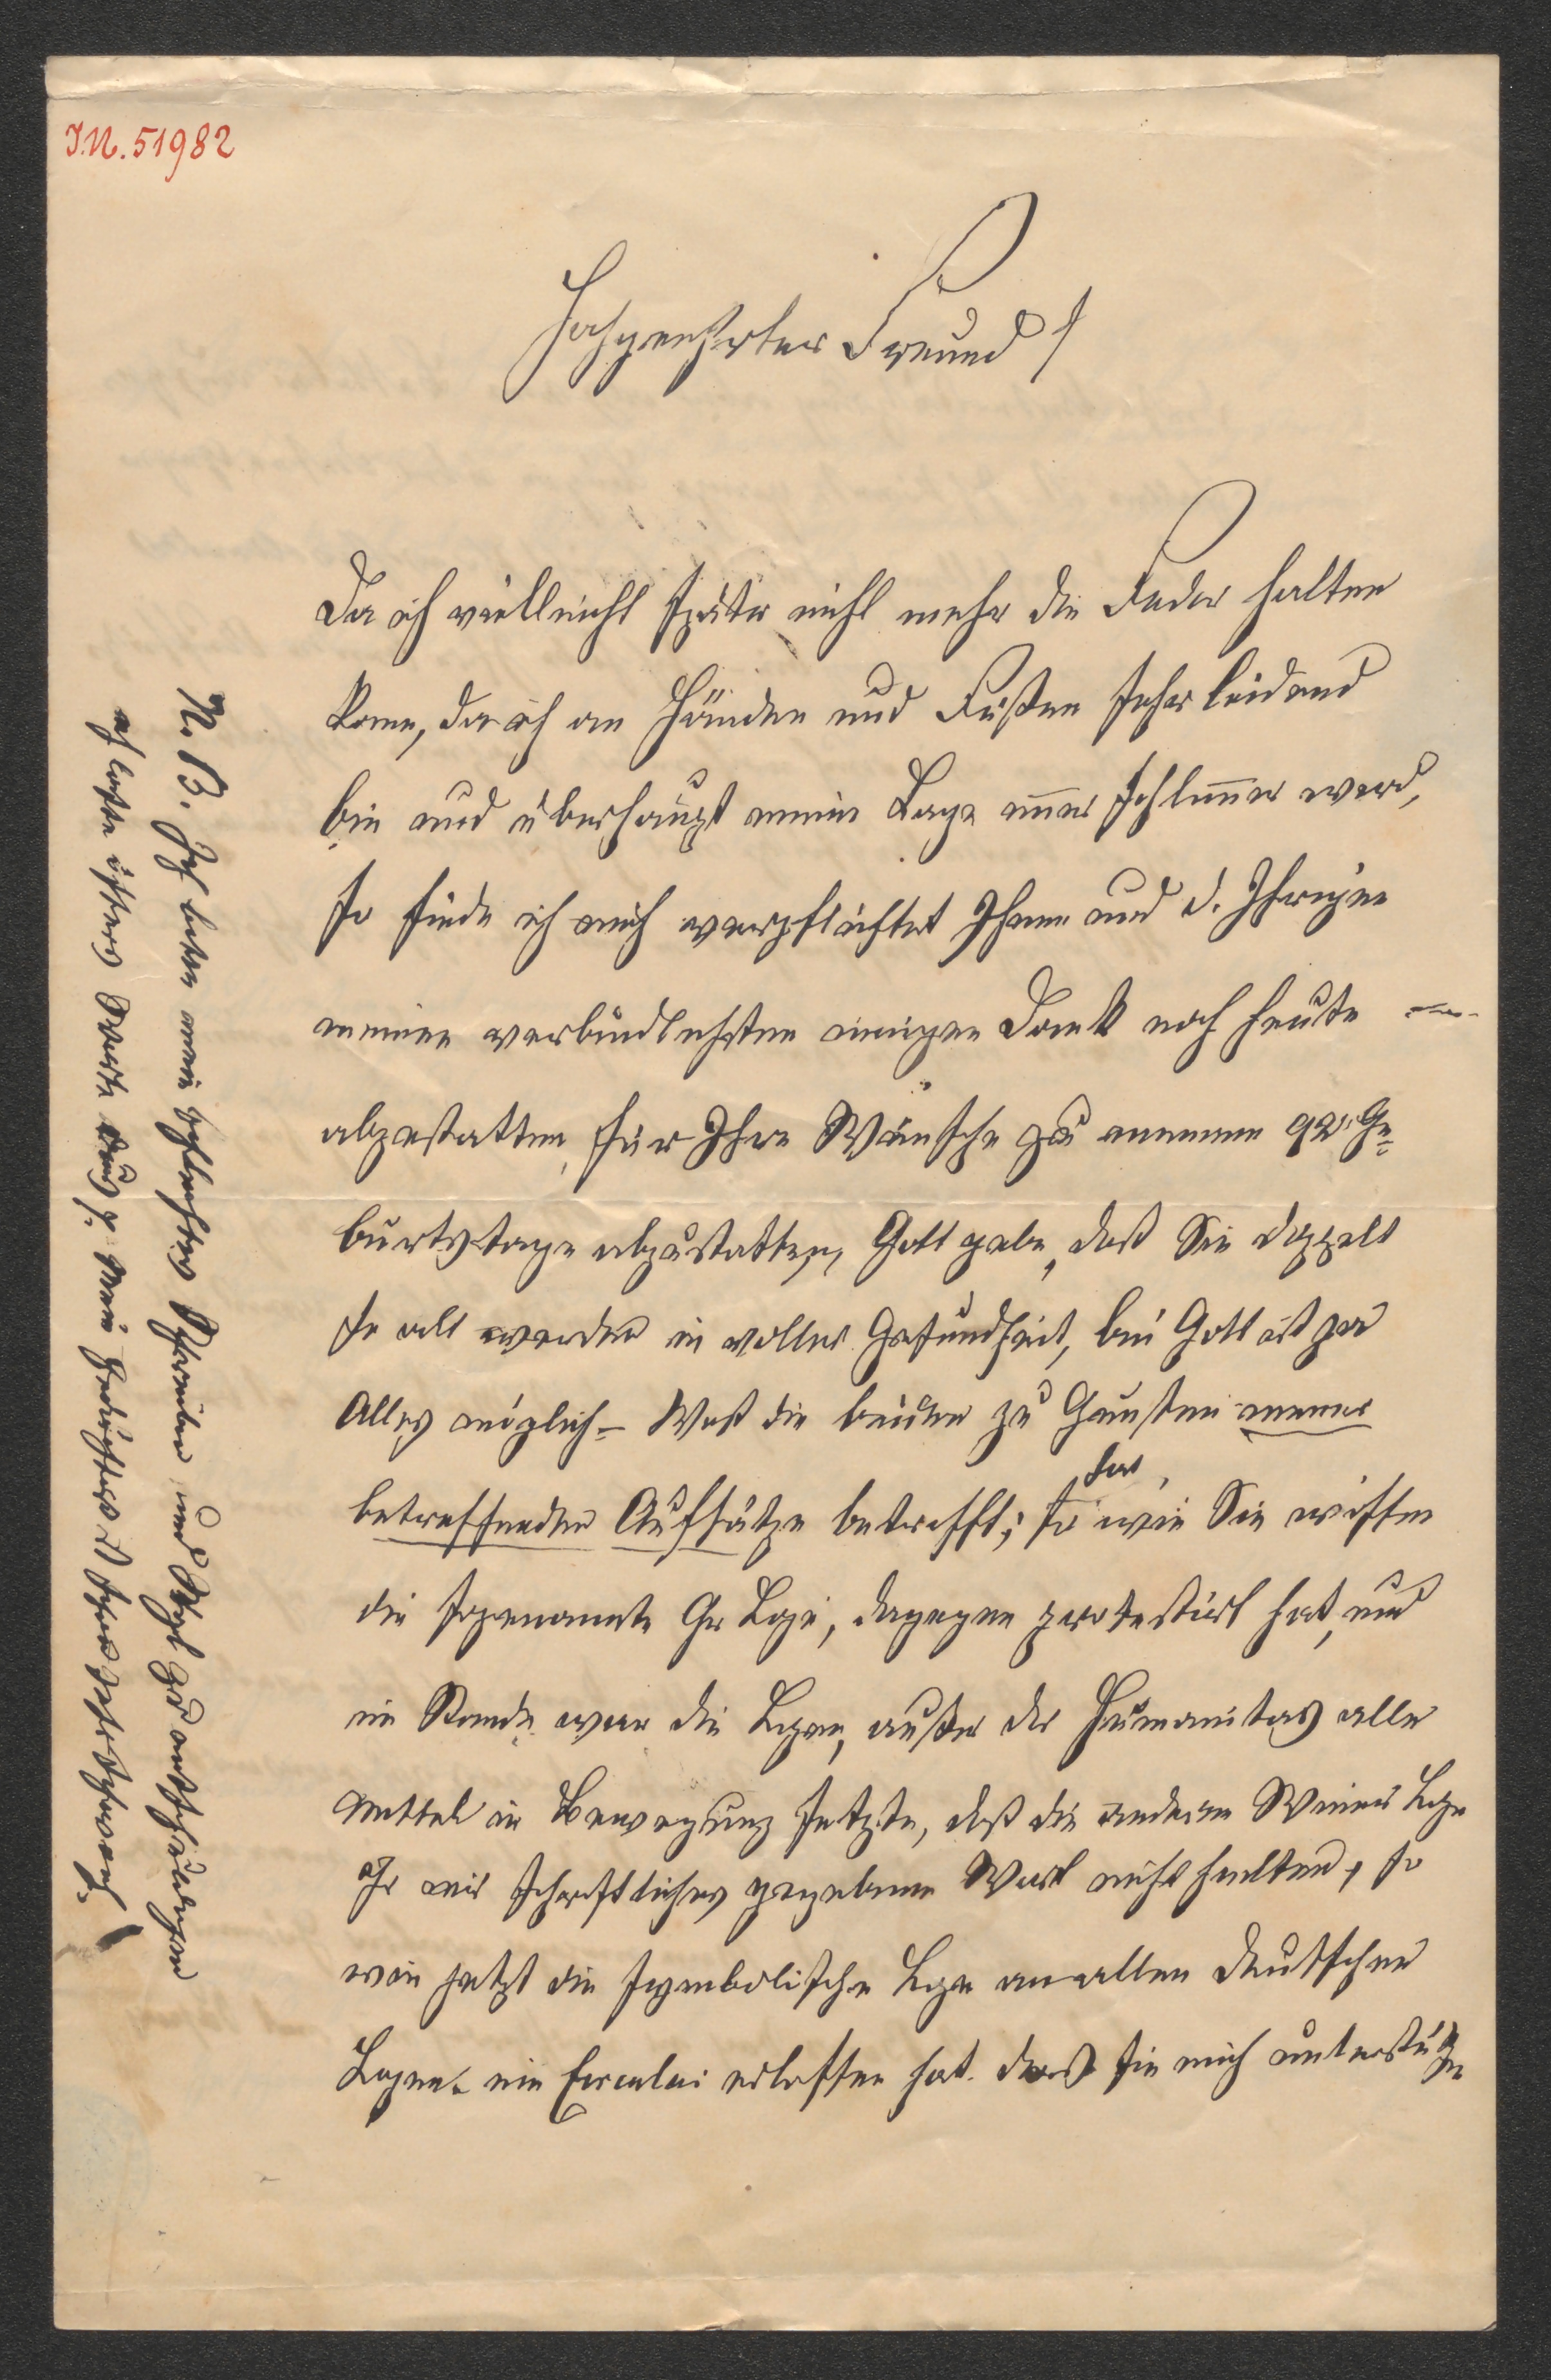 J.N. 51982
Hochgeehrter Freund!
Da ich vielleicht später nicht mehr die Feder halten
kann, da ich an Händen und Füßen sehr leidend
bin und überhaupt meine Lage im̅er schlim̅er wird,
so finde ich mich verpflichtet Ihnen und d. Ihrigen
meinen verbindlichsten innigen Dank noch heute
abzustatten, für Ihre Wünsche zu meinem 92. Ge-
burtstage abzustatten, Gott gebe, daß Sie doppelt
so alt werden in voller Gesundheit, bei Gott ist ja
Alles möglich – Was die beiden zu Gunsten meiner
betreffenden Aufsätze betrifft; so hat, wie Sie wissen
die sogenannte Gr Loge, dagegen protestirt hat, und
im Stande war die Logen, außer der Humanitas alle
Mittel in Bewegung setzte, daß die anderen Wiener Loge
Ihr mir schriftliches gegebenes Wort nicht hielten, so
wie jetzt die symbolische Loge an allen deutschen
Logen ein Circular erlassen hat. daß sie mich unterstütze
N. B. Ich bitte mein schlechtes Schreiben und Styl zu entschuldigen
ich lasse öfters Worte aus, mein Gedächtniß ist sehr schwach!